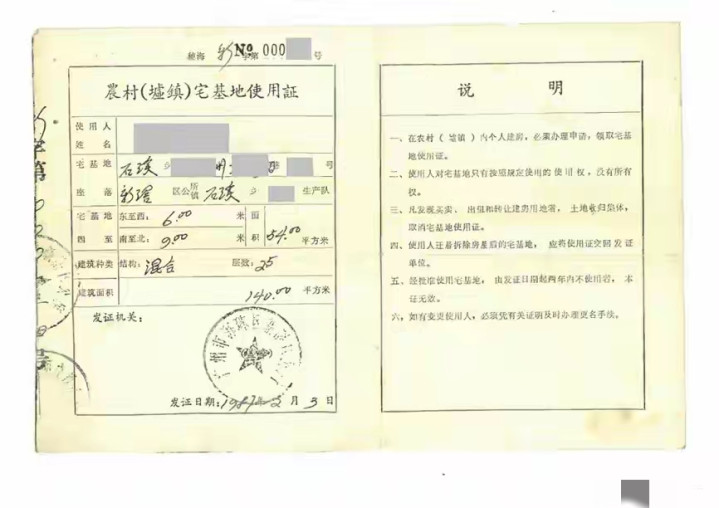 新 No 000 号
農村(墟鎮)宅基地使用証
使用人
姓名
宅基地 石溪
座落 新滘 区公所 镇 石溪 生产队
宅基地 东至西: 6.00 米 面
四至 南至北: 9.00 米 积 54.00 平方米
建筑种类 结构: 混合 层数: 2.5
建筑面积 140.00 平方米
发证机关:
发证日期: 1987年 2月 3日
说明
一、在农村(墟镇)内个人建房,必须办理申请,领取宅基
地使用证。
二、使用人对宅基地只有按照规定使用的使用权,没有所有
权。
三、凡发现买卖、出租和转让建房用地者,土地收归集体,
取消宅基地使用证。
四、使用人迁易拆除房屋后的宅基地,应将使用证交回发证
单位。
五、经批准使用宅基地,由发证日期起两年内不使用者,本
证无效。
六、如有变更使用人,必须凭有关证明及时办理更名手续。